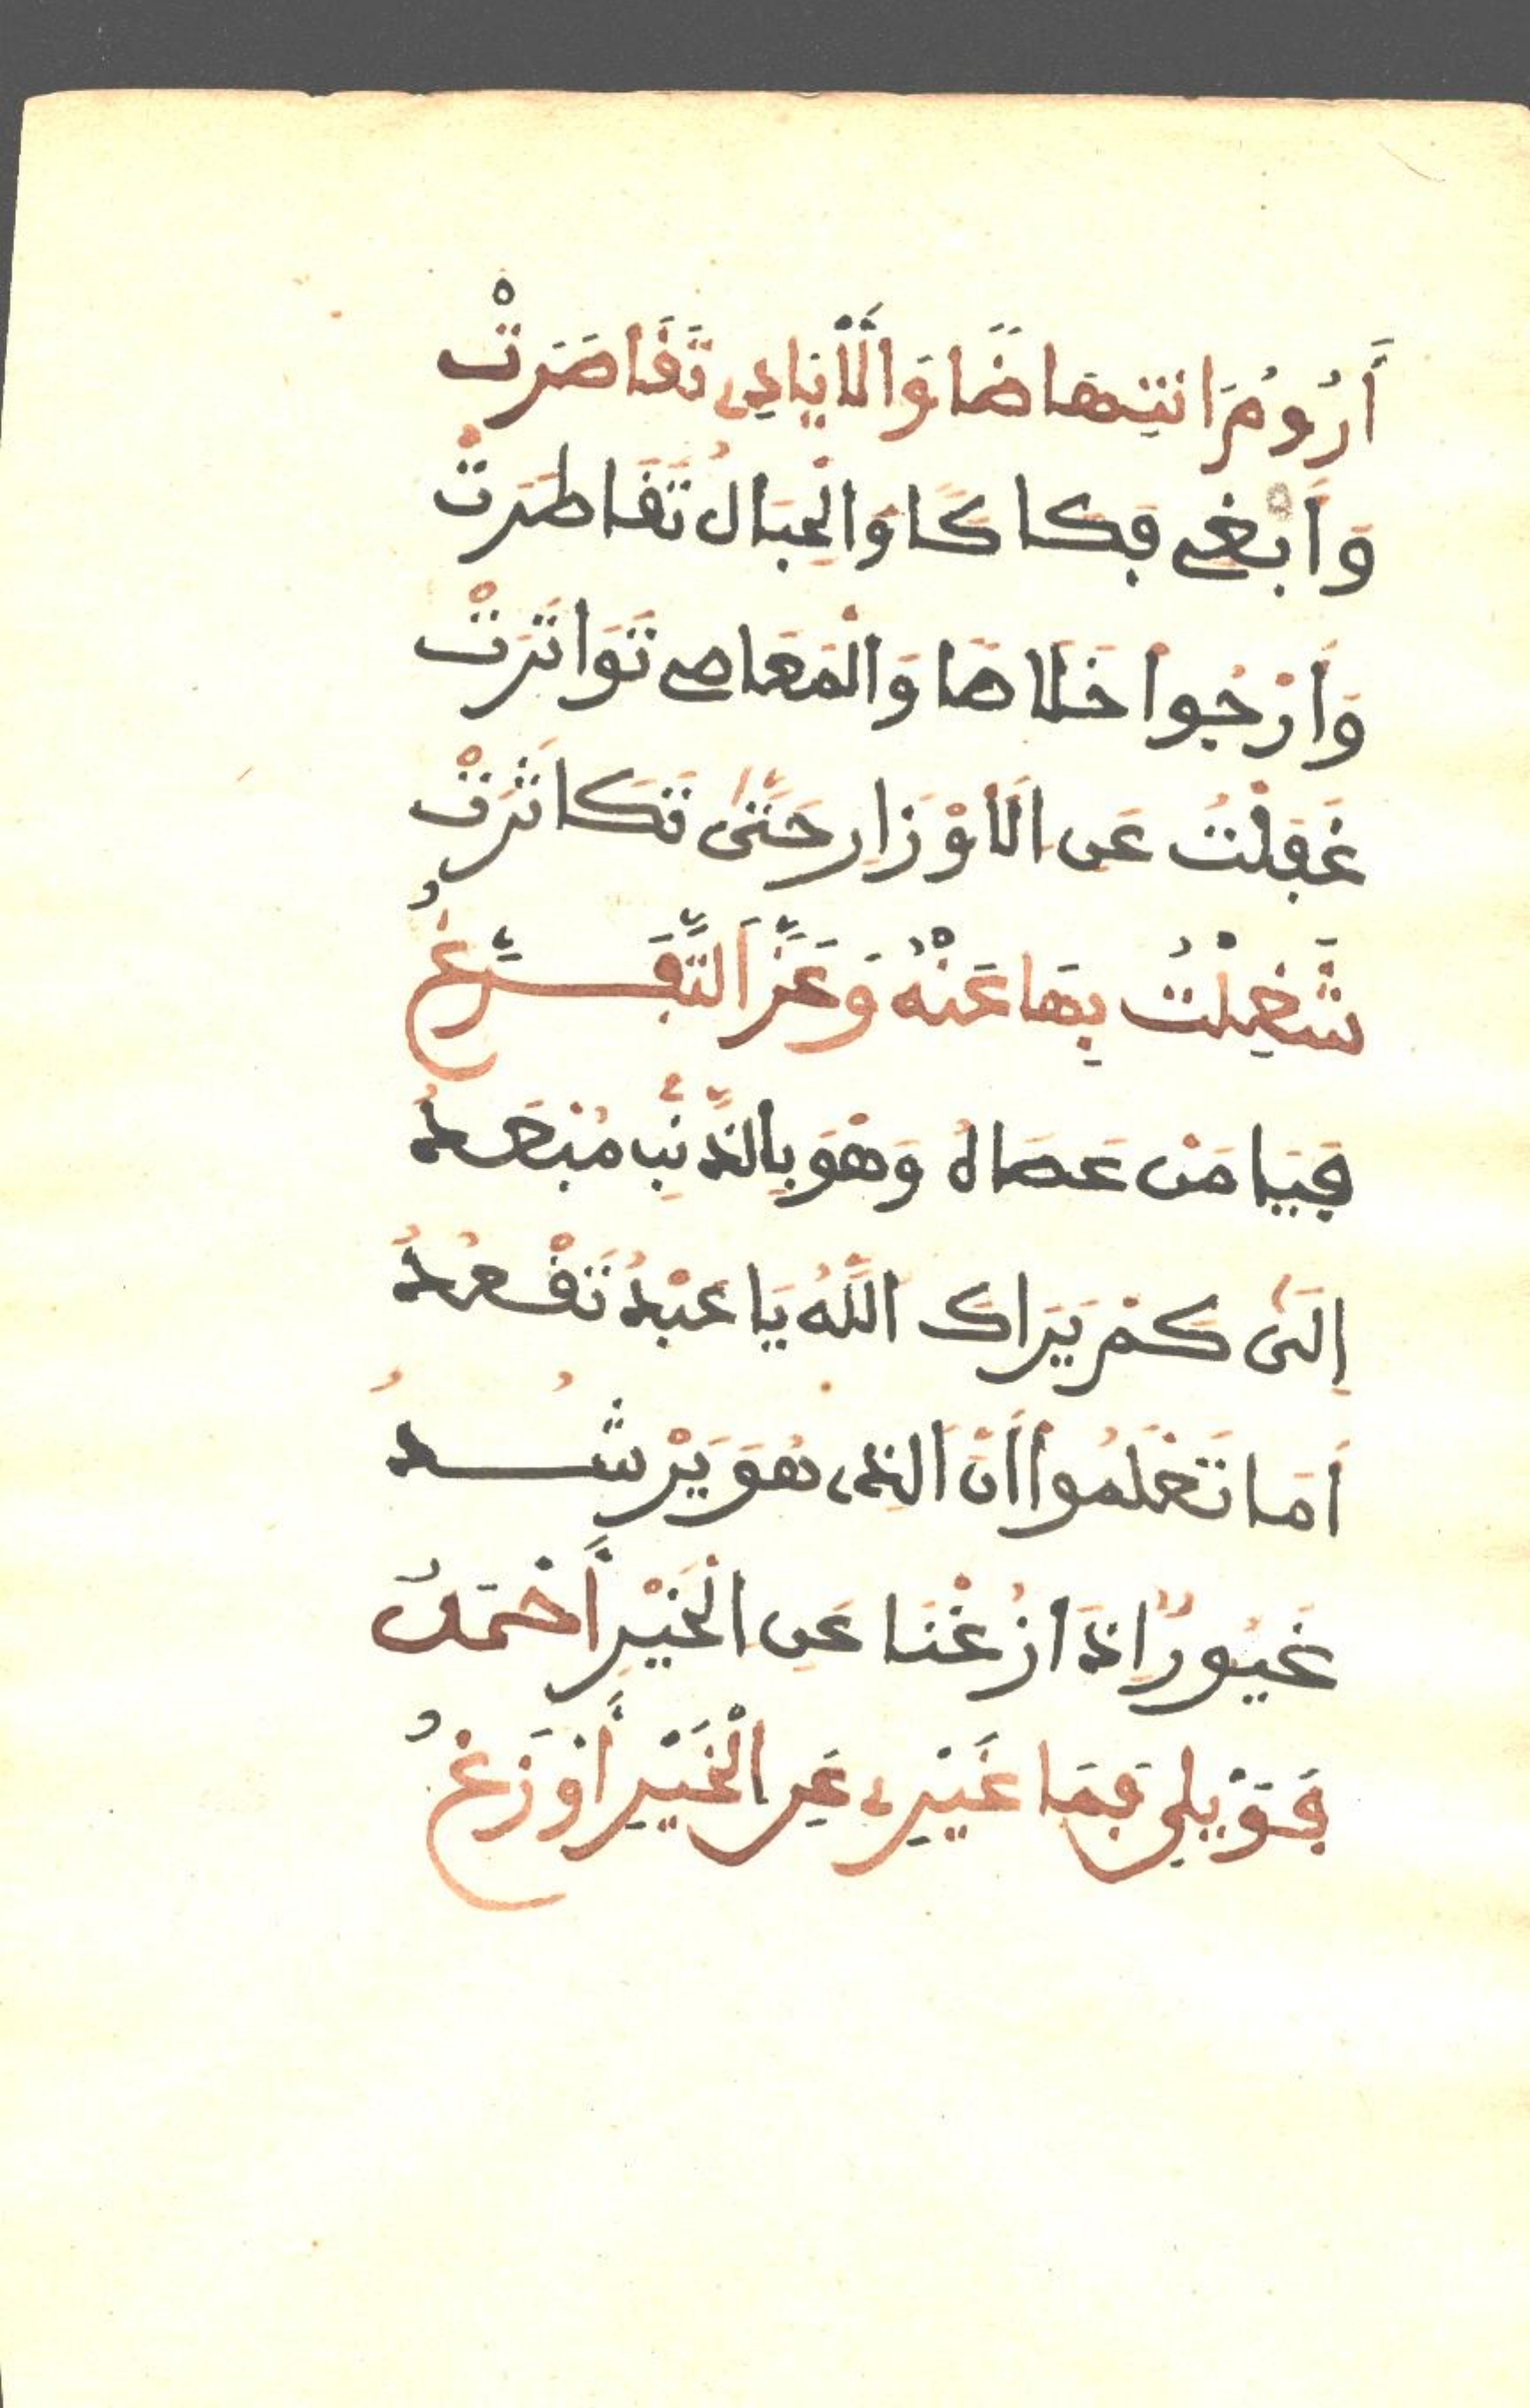 أَرُومُ انْتِهَاضًا وَالْأَيَادِي تَقَاصَرَتْ
وَأَبْغِي فِكَاكًا وَالْحِبَالُ تَقَاطَرَتْ
وَأَرْجُوا خَلَاهَا وَالْمَعَاصِي تَوَاتَرَتْ
غَفِلْتُ عَنِ الْأَوْزَارِ حَتَّى تَكَاثَرَتْ
شُغِلْتُ بِهَا عَنْهُ وَعَزَّ التَّفَرُّغُ
فَيَا مَنْ عَصَاهُ وَهْوَ بِالذَّنْبِ مُبْعَدُ
إِلَى كَمْ يَرَاكَ اللَّهُ يَا عَبْدُ تَقْعُدُ
أَمَا تَعْلَمُوا أَنَّ الَّذِي هُوَ يُرْشِدُ
غَيُورٌ إِذَا زُغْنَا عَنِ الْخَيْرِ أَحْمَدٌ
فَوَيْلِي فَمَا غَيْرِي عَنِ الْخَيْرِ أَوْزَغُ